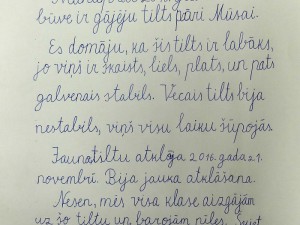 būve ir gājēju tilts pāri Mūsai.
Es domāju, ka šis tilts ir labāks,
jo viņš ir skaists, liels, plats, un pats
galvenais stabils. Vecais tilts bija
nestabils, viņš visu laiku šūpojās.
Jauno tiltu atklāja 2016. gada 21.
novembrī. Bija jauka atklāšana.
Nesen, mēs visa klase aizgājām
uz šo tiltu un barojām pīles. Šajet